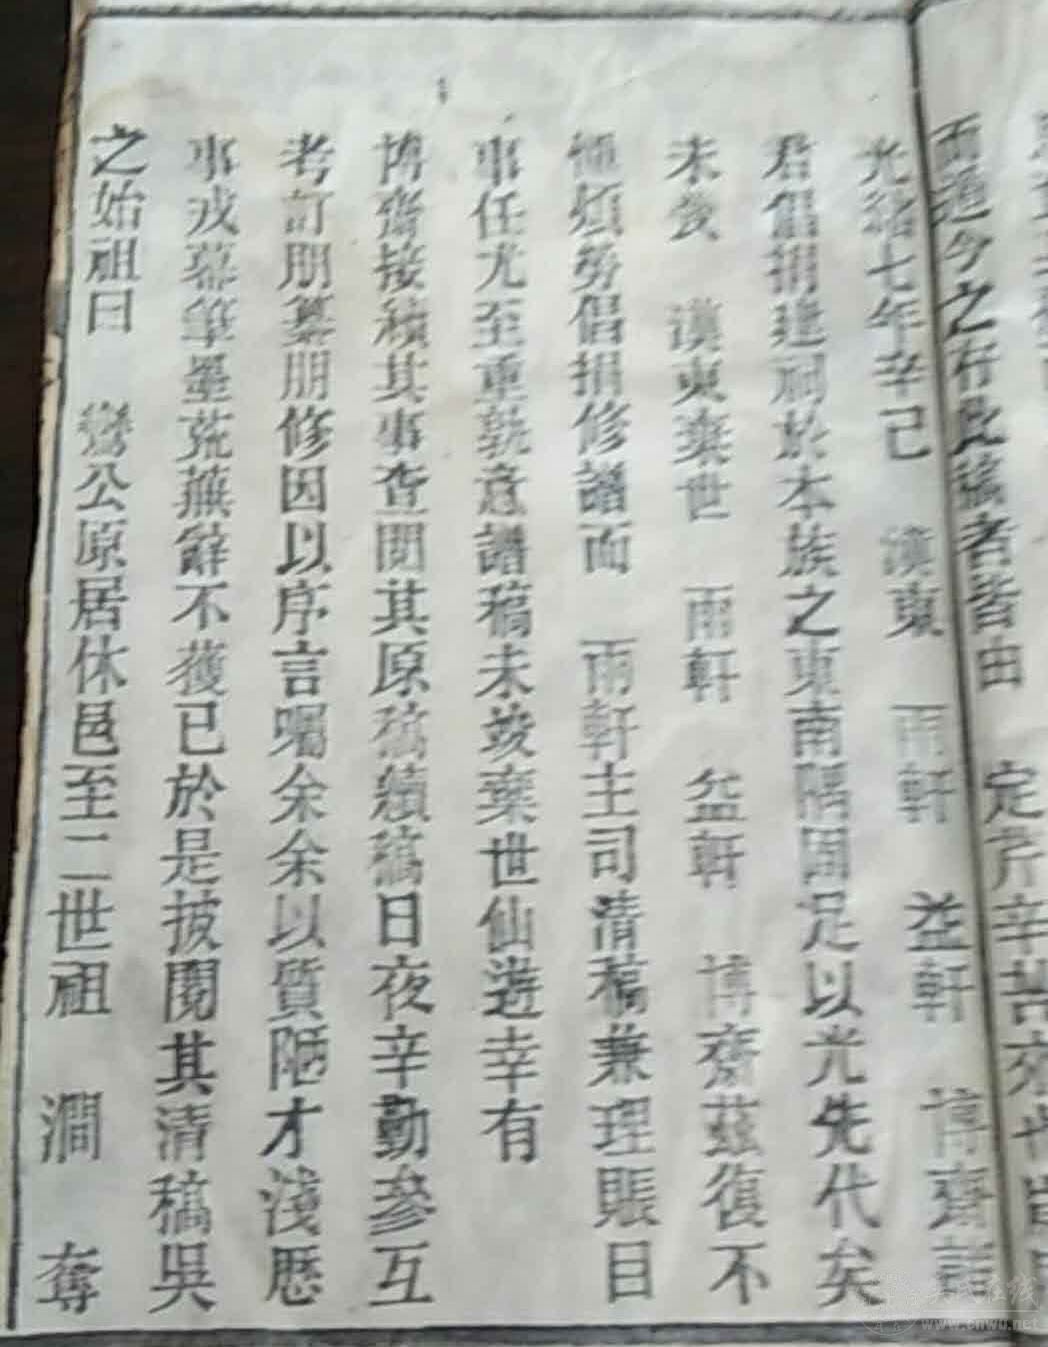 而通今之存此稿者皆由　定芹辛苦來也
光緒七年辛己　漢東　雨軒　益軒　博齋諸
君倡捐建祠於本族之東南隅固足以光先代矣
未幾　漢東棄世　雨軒　益軒　博齋茲復不
憚煩勞倡捐修譜而　雨軒主司清稿兼理賬目
事任尤至重孰意譜稿未竣棄世仙遊幸有
博齋接續其事查閱其原稿續稿日夜辛勤參互
考訂朋纂朋修因以序言囑余余以質陋才淺歷
事戎幕筆墨荒蕪辭不獲已於是披閱其清稿吳
之始祖曰　鸞公原居休邑至二世祖　澗　奪
吴氏在线
www.cnwu.net